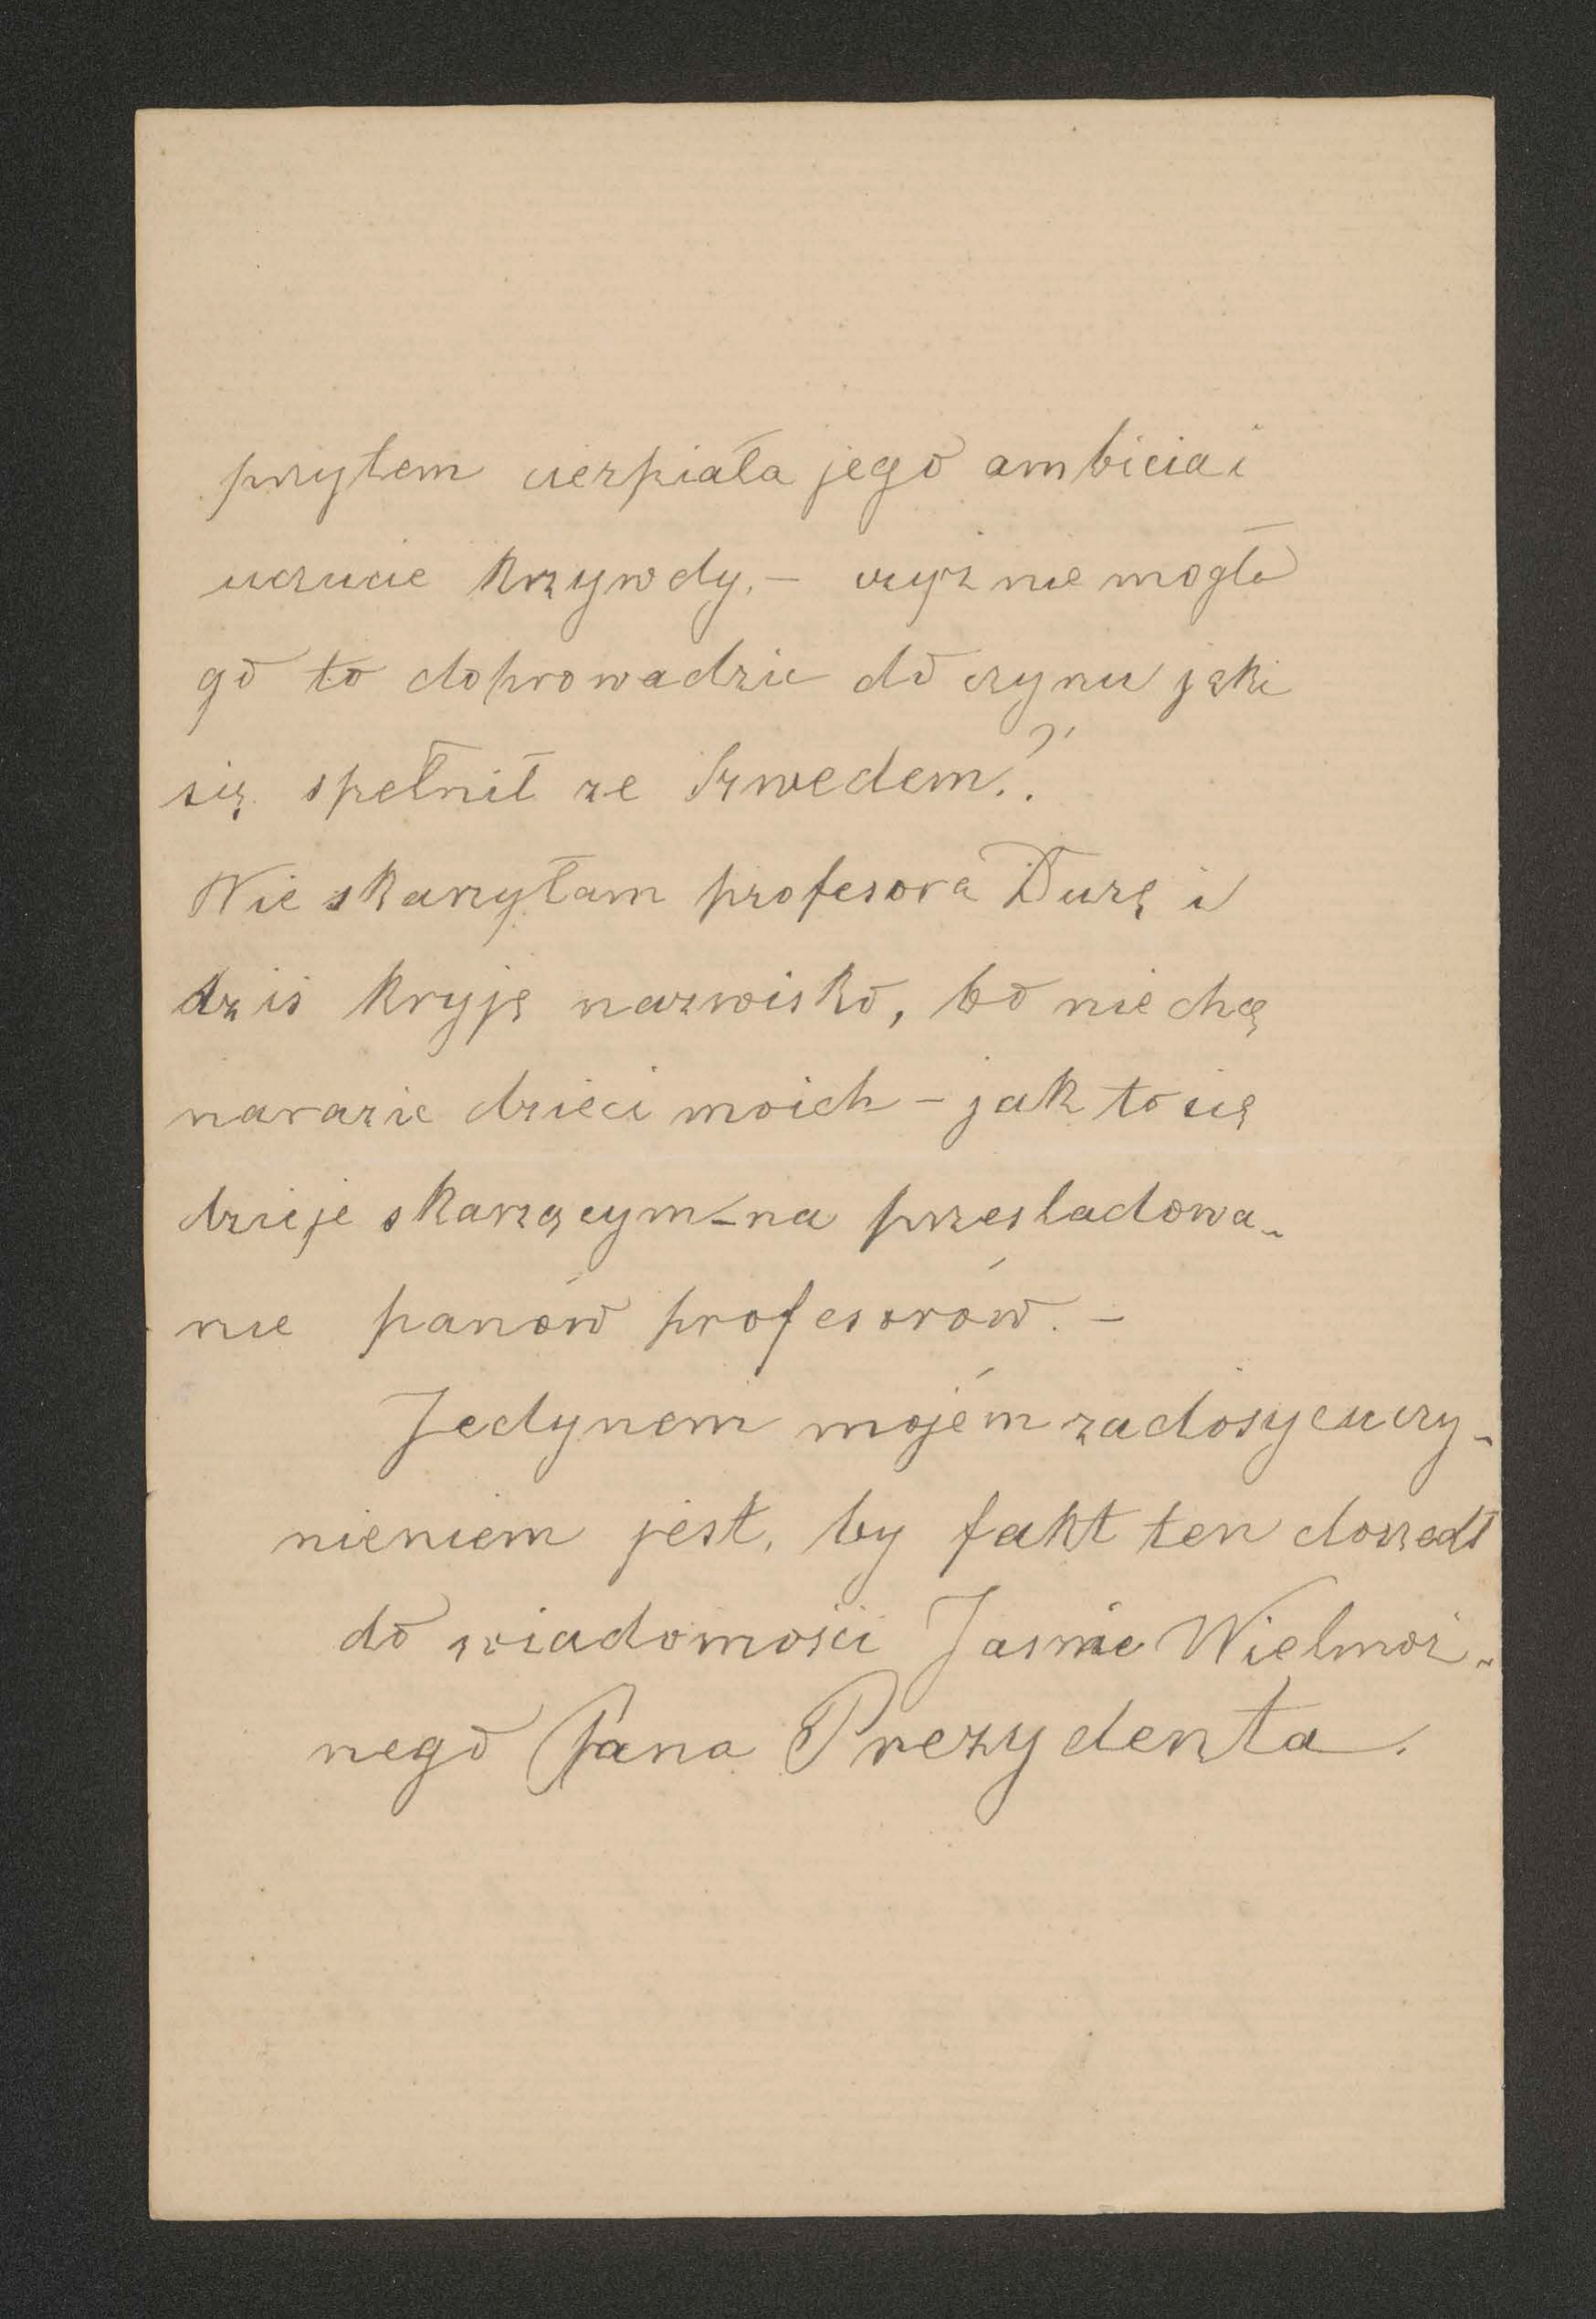 przytem cierpiała jego ambicia i
uczucie krzywdy, – czyż nie mogło
go to doprowadzic do czynu jaki
się spełnił ze Szwedem.?
Nie skarzyłam profesora Duzę i
dzis kryję nazwisko, bo nie chcę
narazic dzieci moich – jak to się
dzieje skarzącym – na przesladowa-
nie panów profesorów. –
Jedynem mojém zadosycuczy-
nieniem jest, by fakt ten doszedł
do wiadomości Jasnie Wielmoż-
nego Pana Prezydenta.